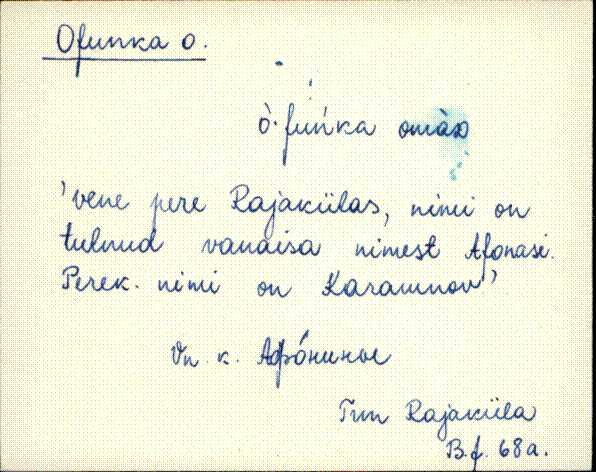 Ofunka o.
ò·fuńka omàɒ
'vene pere Rajakülas, nimi on
tulnud vanaisa nimest Afonasi.
Perek. nimi on Karaumov'
Vn. k. Афо́нинов
Trm Rajaküla
B.f. 68a.